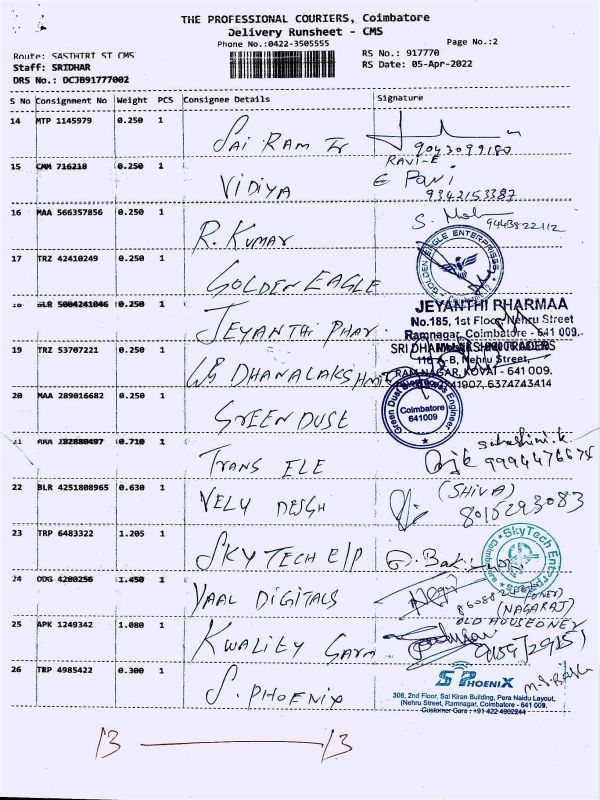 THE PROFESSIONAL COURIERS, Coimbatore
Delivery Runsheet - CMS
Phone No.:0422-3505555
Page No.:2
Route: SASTHTRI ST CMS
Staff: SRIDHAR
DRS No.: DCJB91777002
RS No.: 917770
RS Date: 05-Apr-2022
S No Consignment No Weight PCS Consignee Details Signature
14 MTP 1145979 0.250 1 SAI RAM Tr 9043099180
15 CMM 716218 0.250 1 VIDIYA RAVI-E
9342153387
16 MAA 566357856 0.250 1 R. KUMAR 9443822112
17 TRZ 42410249 0.250 1 GOLDEN EAGLE GOLDEN EAGLE ENTERPRISES
18 GLR 5004241046 0.250 1 JEYANTHI PHAR. JEYANTHI PHARMAA
No.185, 1st Floor, Nehru Street
Ramnagar, Coimbatore - 641 009.
19 TRZ 53707221 0.250 1 DHANALAKSHMI SRI DHANALAKSHMI TRADERS
116 A-B, Nehru Street,
RAM NAGAR, KOVAI - 641 009.
6374743414
20 MAA 289016682 0.250 1 GREEN DUSE Coimbatore
641009
21 MAA 282880497 0.710 1 TRANS ELE 9994476674
22 BLR 4251808965 0.630 1 VELU DESGH (SHIVA)
8015293083
23 TRP 6483322 1.205 1 SKYTECH E/P SkyTech Enter
24 ODG 4200256 1.450 1 VAAL DIGITALS (NAGARAJ)
25 APK 1249342 1.080 1 KWALITY Gara
26 TRP 4985422 0.300 1 S. PHOENIX S PHOENIX
308, 2nd Floor, Sai Kiran Building, Pera Naidu Layout,
(Nehru Street, Ramnagar, Coimbatore - 641 009.
Customer Care : +91 422 4982244
13 13